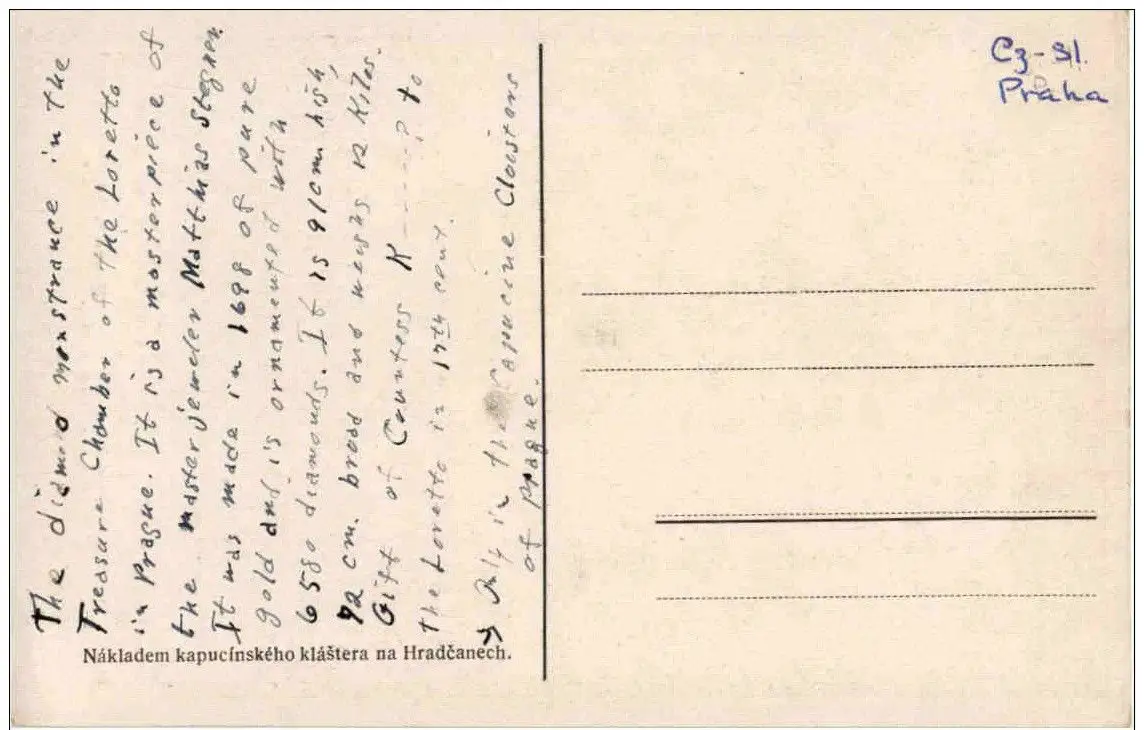 The diamond monstrance in the
Treasure Chamber of the Loretto
in Prague. It is a masterpiece of
the master jeweler Matthias Stegner.
It was made in 1698 of pure
gold and is ornamented with
6580 diamonds. It is 910 m. high,
72 cm. broad and weighs 12 Kilos.
Gift of Countess K------? to
the Loretto in 17th cent.
→ in the Capucine Cloisters
of Prague.
Nákladem kapucínského kláštera na Hradčanech.
Cz-Sl.
Praha